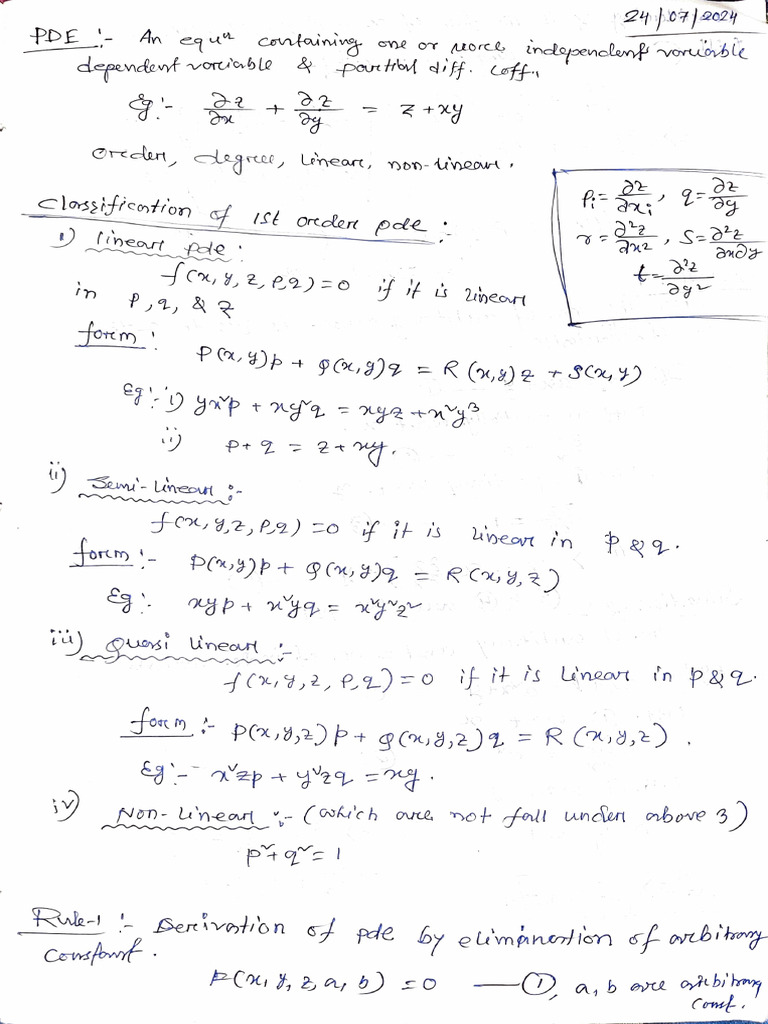 24/07/2024
PDE :- An equⁿ containing one or more independent variable
dependent variable & partial diff. coff.,
Eg:- ∂z/∂x + ∂z/∂y = z + xy
Order, degree, linear, non-linear.
pᵢ = ∂z/∂xᵢ, q = ∂z/∂y
r = ∂²z/∂x², S = ∂²z/∂x∂y
t = ∂²z/∂y²
Classification of 1st order pde :-
i) linear pde :
f(x, y, z, p, q) = 0 if it is linear
in p, q, & z
form :
P(x, y)p + Q(x, y)q = R(x, y)z + S(x, y)
Eg:- i) yx²p + xy²q = xyz + x²y³
ii) p + q = z + xy.
ii) Semi-linear :-
f(x, y, z, p, q) = 0 if it is linear in p & q.
form :- P(x, y)p + Q(x, y)q = R(x, y, z)
Eg:- xyp + x²yq = x²y²z²
iii) Quasi linear :-
f(x, y, z, p, q) = 0 if it is linear in p & q.
form :- P(x, y, z)p + Q(x, y, z)q = R(x, y, z).
Eg:- x²zp + y²zq = xy.
iv) Non-linear :- (which are not fall under above 3)
p² + q² = 1
Rule-1 :- Derivation of pde by elimination of arbitrary
constant.
F(x, y, z, a, b) = 0 —— ①, a, b are arbitrary
const.